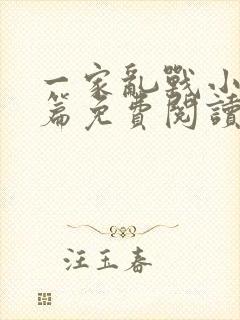 一家亂戰小
篇免費閱讀
汪玉春